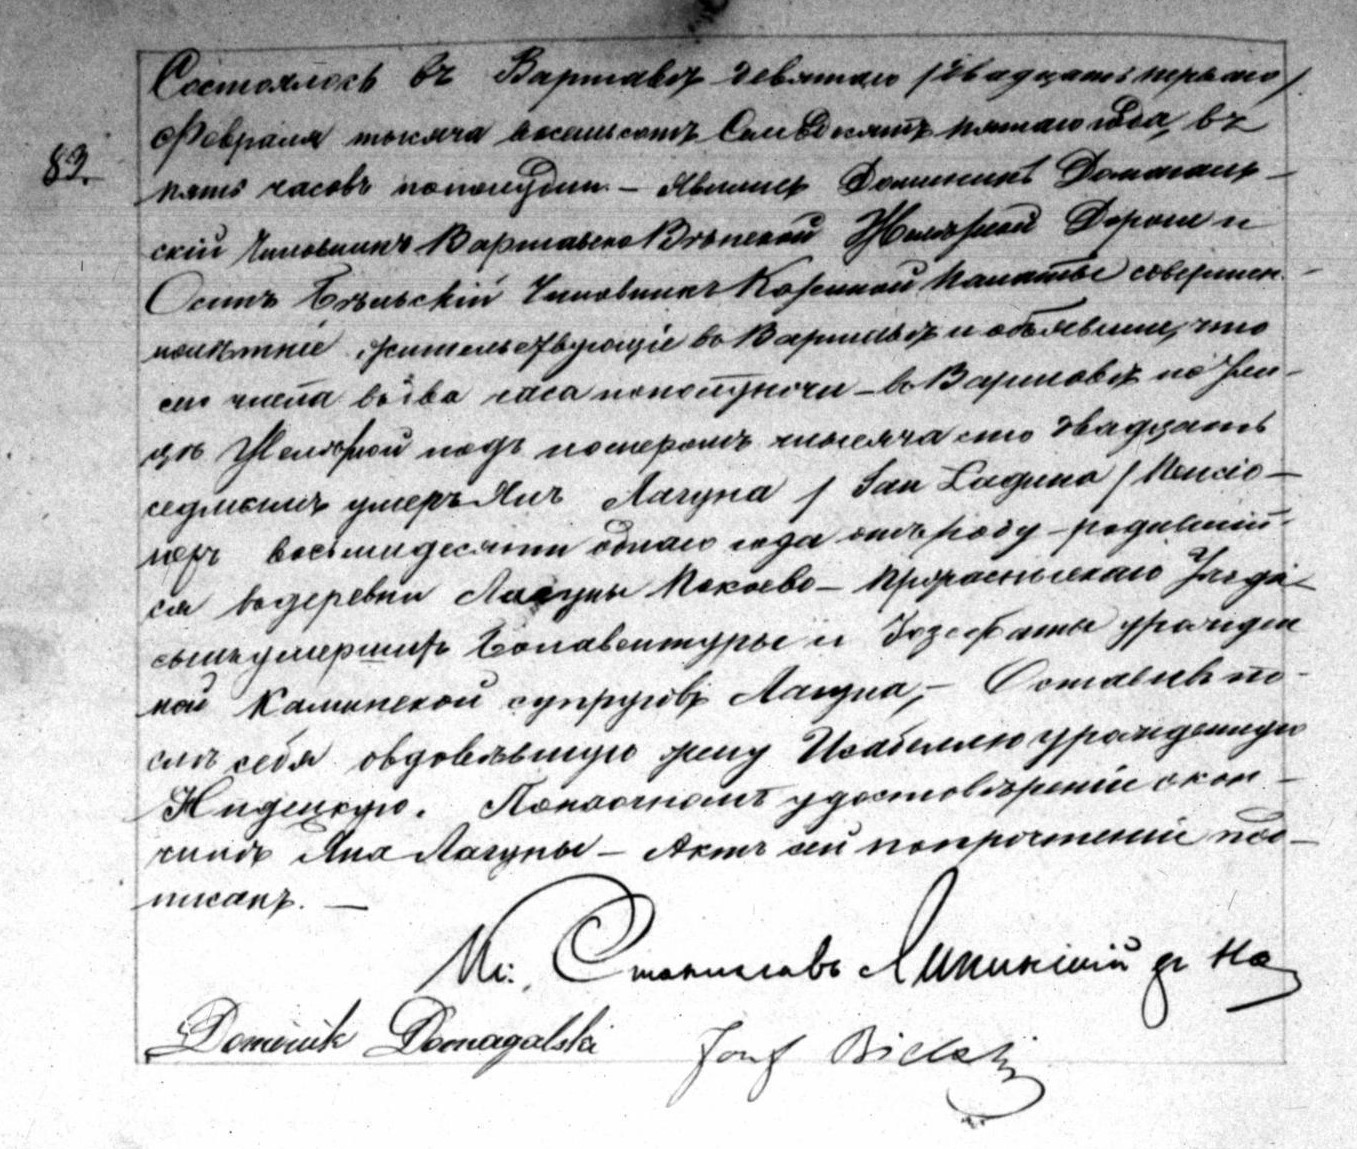 Состоялось въ Варшавѣ девятаго /двадцать перваго/
Февраля тысяча восемьсотъ семьдесятъ пятаго года, въ
83.
пять часовъ пополудни. – Явились Доминикъ Домагаль–
скій Чиновникъ Варшавско Вѣнской Желѣзной Дороги и
Осипъ Бѣльскій Чиновникъ Палаты совершен–
нолѣтніе жительствующіе въ Варшавѣ и объявили, что
сего числа въ два часа пополуночи – въ Варшавѣ по Ули–
цѣ Желѣзной подъ номеромъ тысяча сто двадцать
седмымъ умеръ Янъ Лагуна / Jan Laguna / Пенсіо–
неръ восьмидесяти одного года отъ роду – родившій–
ся въ деревни Лагуны – Уѣзда
сынъ умершихъ Бонавентуры и Іозефаты урожден
ной Каминской супруговъ Лагуна, – Оставивъ по–
слѣ себя овдовѣвшую жену Изабеллю урожденную
Нидецкую. По наочномъ удостовѣреніи о кон–
чинѣ Яна Лагуны – Актъ сей по прочтеніи под–
писанъ. –
Станиславъ
Dominik Domagalski Józef Bielski